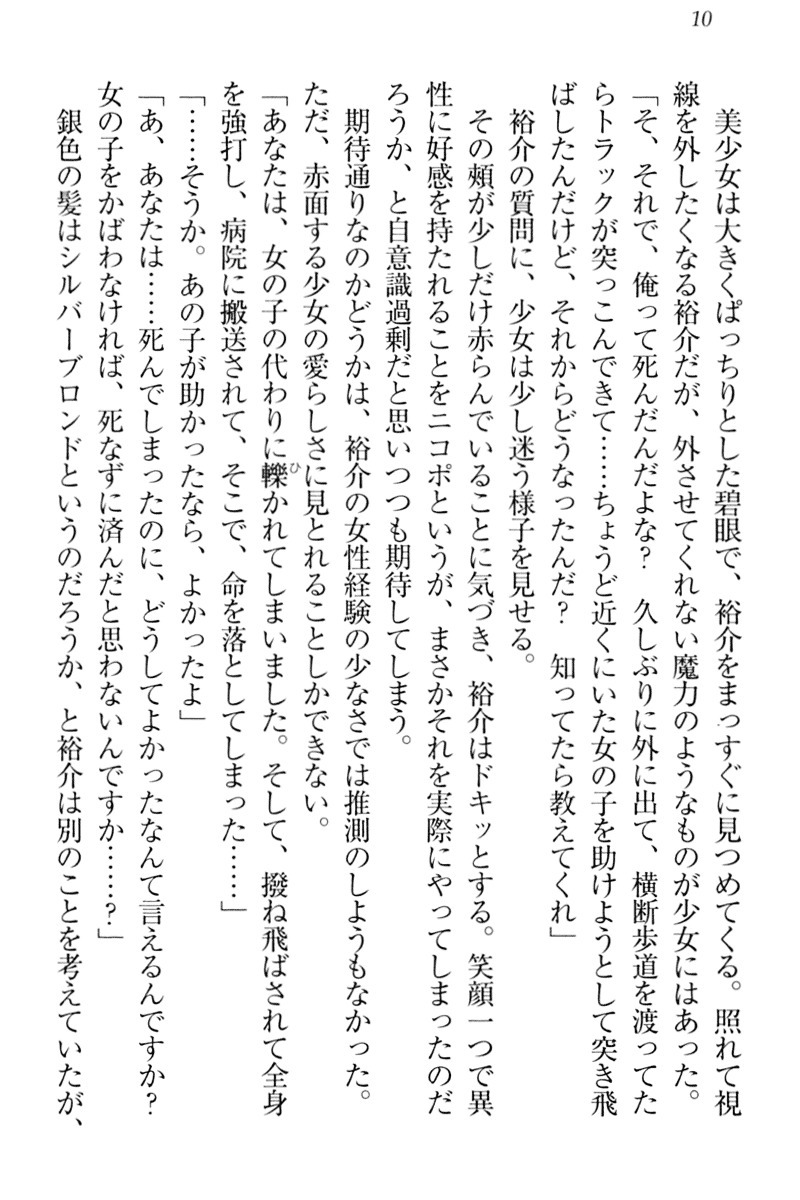 10
美少女は大きくぱっちりとした碧眼で、裕介をまっすぐに見つめてくる。照れて視
線を外したくなる裕介だが、外させてくれない魔力のようなものが少女にはあった。
「そ、それで、俺って死んだんだよな？　久しぶりに外に出て、横断歩道を渡ってた
らトラックが突っこんできて……ちょうど近くにいた女の子を助けようとして突き飛
ばしたんだけど、それからどうなったんだ？　知ってたら教えてくれ」
裕介の質問に、少女は少し迷う様子を見せる。
その頬が少しだけ赤らんでいることに気づき、裕介はドキッとする。笑顔一つで異
性に好感を持たれることをニコポというが、まさかそれを実際にやってしまったのだ
ろうか、と自意識過剰だと思いつつも期待してしまう。
期待通りなのかどうかは、裕介の女性経験の少なさでは推測のしようもなかった。
ただ、赤面する少女の愛らしさに見とれることしかできない。
「あなたは、女の子の代わりに轢かれてしまいました。そして、撥ね飛ばされて全身
を強打し、病院に搬送されて、そこで、命を落としてしまった……」
「……そうか。あの子が助かったなら、よかったよ」
「あ、あなたは……死んでしまったのに、どうしてよかったなんて言えるんですか？
女の子をかばわなければ、死なずに済んだと思わないんですか……？」
銀色の髪はシルバーブロンドというのだろうか、と裕介は別のことを考えていたが、